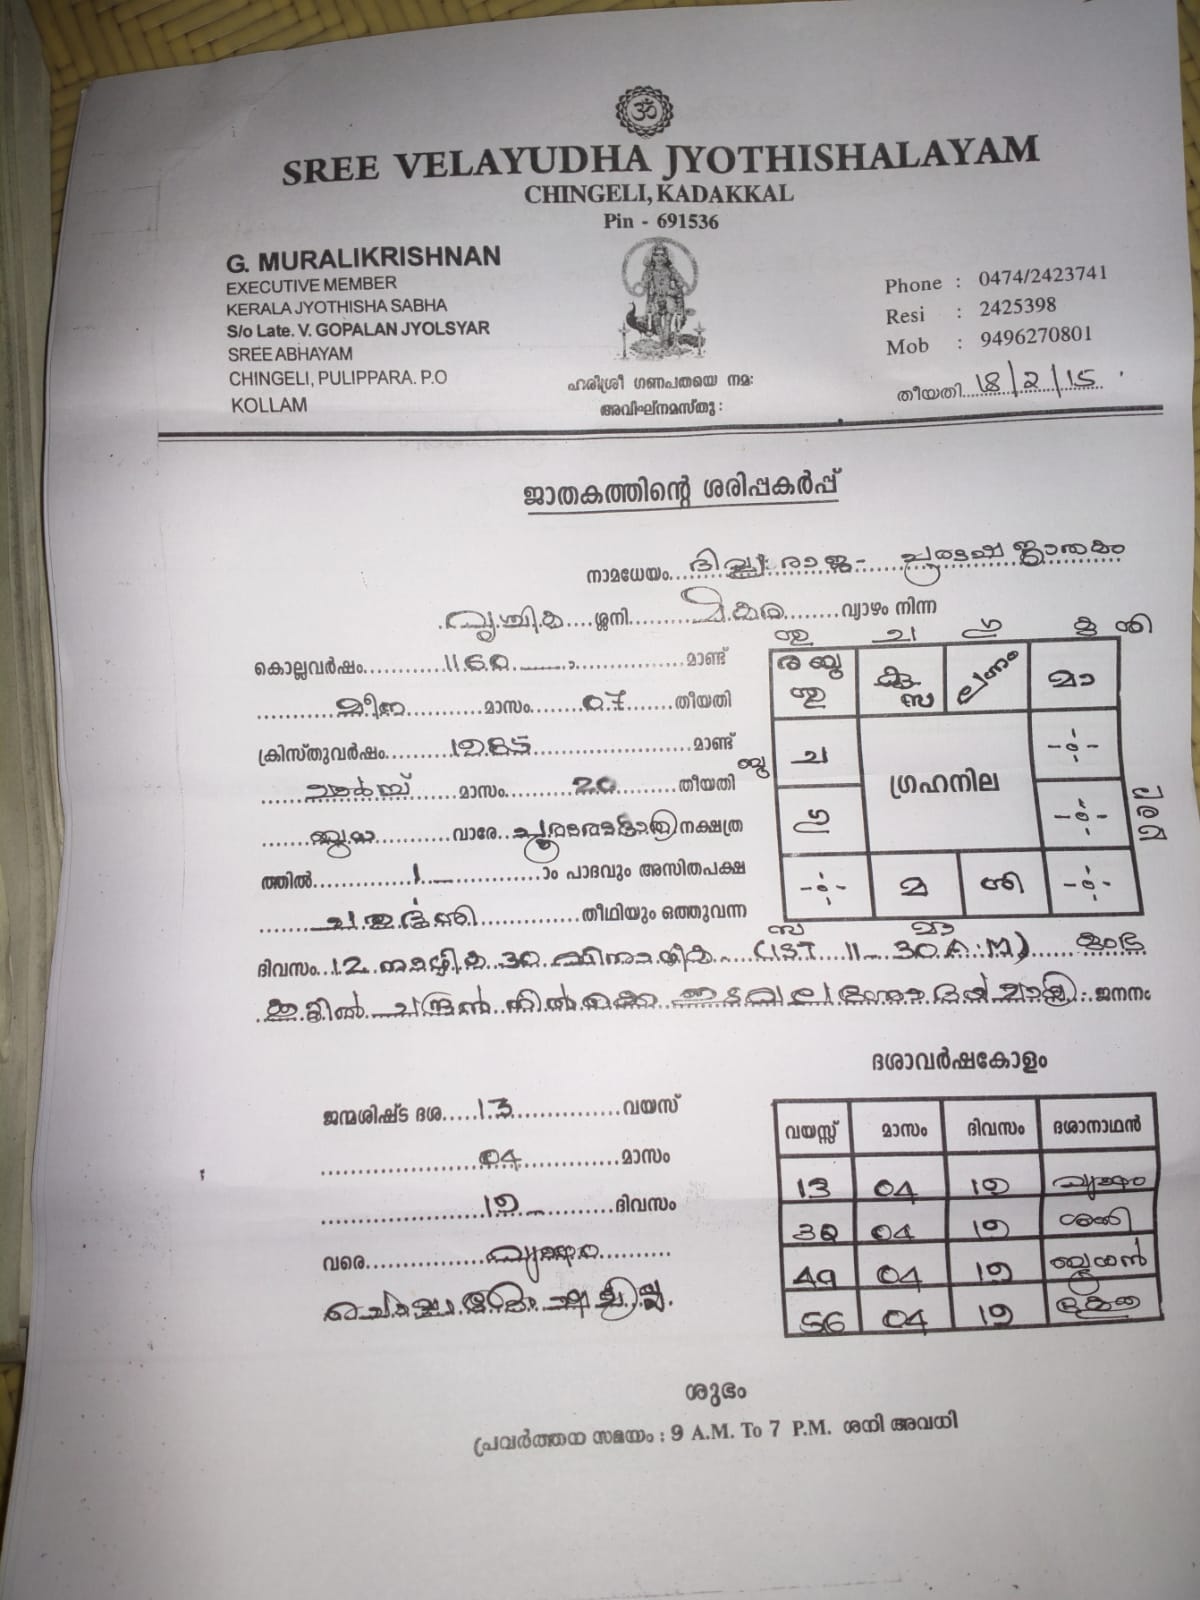 ॐ
SREE VELAYUDHA JYOTHISHALAYAM
CHINGELI, KADAKKAL
Pin - 691536
G. MURALIKRISHNAN
EXECUTIVE MEMBER
KERALA JYOTHISHA SABHA
S/o Late. V. GOPALAN JYOLSYAR
SREE ABHAYAM
CHINGELI, PULIPPARA. P.O
KOLLAM
ഹരിശ്രീ ഗണപതയെ നമഃ
അവിഘ്നമസ്തു :
Phone : 0474/2423741
Resi : 2425398
Mob : 9496270801
തീയതി 18/2/15
ജാതകത്തിന്റെ ശരിപ്പകർപ്പ്
നാമധേയം രാജ - ജാതകം
വൃശ്ചിക ശ്ശനി മകര വ്യാഴം നിന്ന
കൊല്ലവർഷം 1160 മാണ്ട്
മീന മാസം 07 തീയതി
ക്രിസ്തുവർഷം 1985 മാണ്ട്
മാർച്ച് മാസം 20 തീയതി
ബുധ വാരേ പൂരുരുട്ടാതി നക്ഷത്ര
ത്തിൽ 1 ാം പാദവും അസിതപക്ഷ
ചതുർദ്ദശി തീഥിയും ഒത്തുവന്ന
ദിവസം 12 നാഴിക 30 വിനാഴിക (IST 11-30 A.M) കുംഭ
ക്കൂറിൽ ചന്ദ്രൻ നിൽക്കെ ഇടവ ജനനം
ര ബു
കു
ലഗ്നം
മാ
ച
ഗ്രഹനില
ഗു
മ
ശി
ജന്മശിഷ്ട ദശ 13 വയസ്
04 മാസം
19 ദിവസം
വരെ വ്യാഴം
ദശാവർഷകോളം
വയസ്സ് മാസം ദിവസം ദശാനാഥൻ
13 04 19 വ്യാഴം
32 04 19 ശനി
49 04 19 ബുധൻ
56 04 19 കേതു
ശുഭം
പ്രവർത്തന സമയം : 9 A.M. To 7 P.M. ശനി അവധി